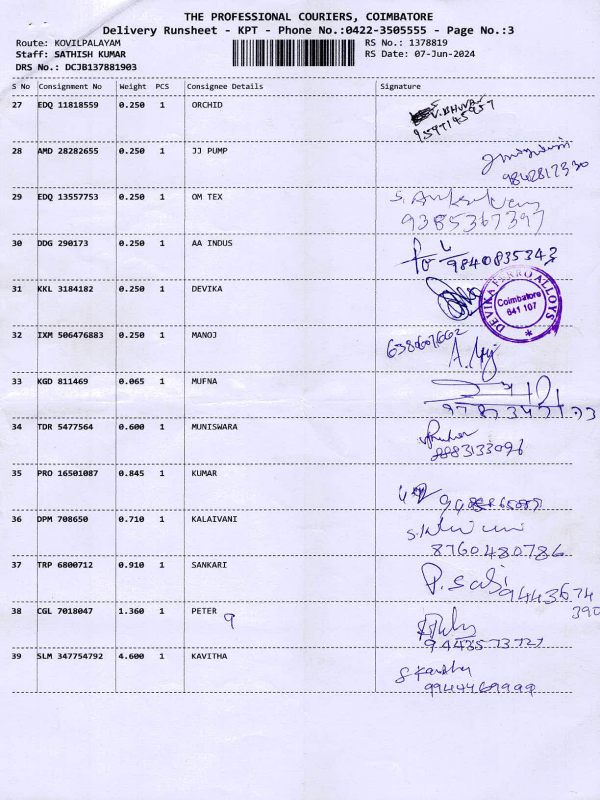 THE PROFESSIONAL COURIERS, COIMBATORE
Delivery Runsheet - KPT - Phone No.:0422-3505555 - Page No.:3
Route: KOVILPALAYAM RS No.: 1378819
Staff: SATHISH KUMAR RS Date: 07-Jun-2024
DRS No.: DCJB137881903
S No Consignment No Weight PCS Consignee Details Signature
27 EDQ 11818559 0.250 1 ORCHID
28 AMD 28282655 0.250 1 JJ PUMP
9842812330
29 EDQ 13557753 0.250 1 OM TEX
9385367397
30 DDG 290173 0.250 1 AA INDUS
9840835343
31 KKL 3184182 0.250 1 DEVIKA
DEVIKA FERRO ALLOYS
Coimbatore
641 107
32 IXM 506476883 0.250 1 MANOJ
6380607662
33 KGD 811469 0.065 1 MUFNA
34 TDR 5477564 0.600 1 MUNISWARA
8883133096
35 PRO 16501087 0.845 1 KUMAR
36 DPM 708650 0.710 1 KALAIVANI
8760480786
37 TRP 6800712 0.910 1 SANKARI
9443674
390
38 CGL 7018047 1.360 1 PETER
9
39 SLM 347754792 4.600 1 KAVITHA
9944469999